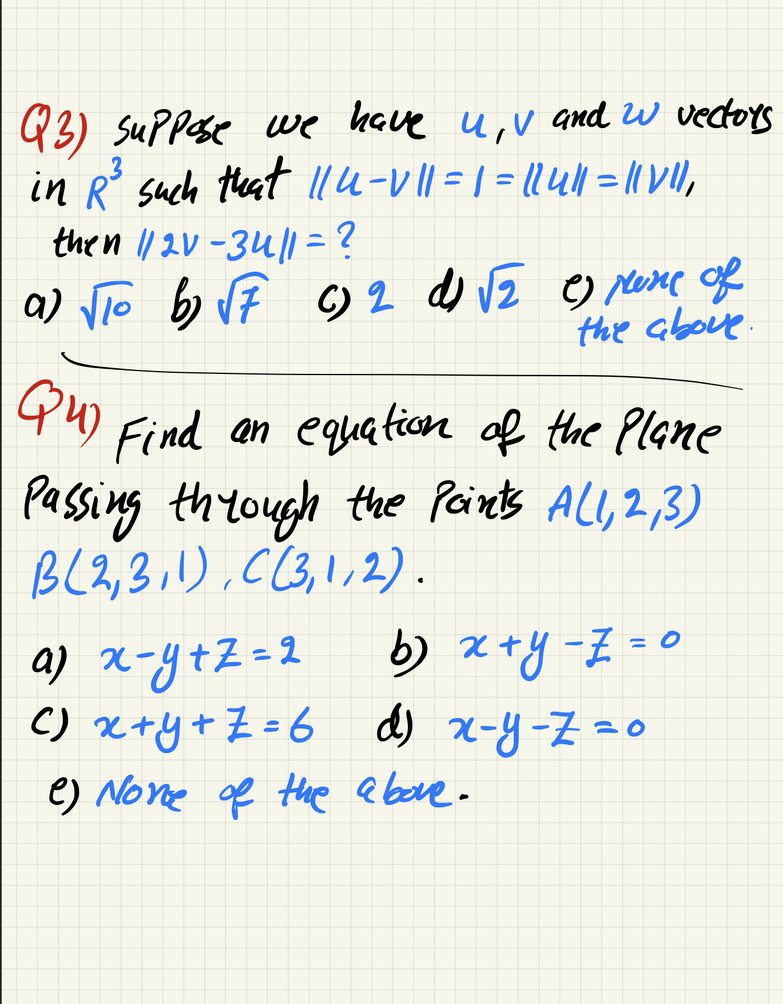 Q3) suppose we have u, v and w vectors
in R³ such that ||u-v|| = 1 = ||u|| = ||v||,
then ||2v-3u|| = ?
a) √10 b) √7 c) 2 d) √2 e) none of
the above.
Q4) Find an equation of the Plane
Passing through the Points A(1,2,3)
B(2,3,1), C(3,1,2).
a) x-y+z=2 b) x+y-z=0
c) x+y+z=6 d) x-y-z=0
e) None of the above.